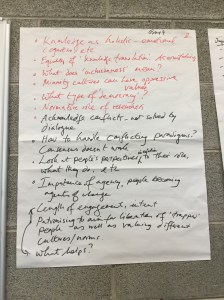 Knowledge as holistic - emotional
cognition etc
Equality of knowledge translation. Accountability
What does 'inclusiveness' mean?
Minority cultures can have oppressive
values
What type of democracy?
Normative role of researcher
Acknowledge conflicts - not solved by
dialogue
How to handle conflicting paradigms?
Consensus doesn't work
Look at people's perspectives to their role,
what they do, etc.
Importance of agency, people becoming
agents of change
Length of engagement, extent
Patronising to aim for liberation of 'trapped'
people as well as valuing different
cultures/norms.
What helps?